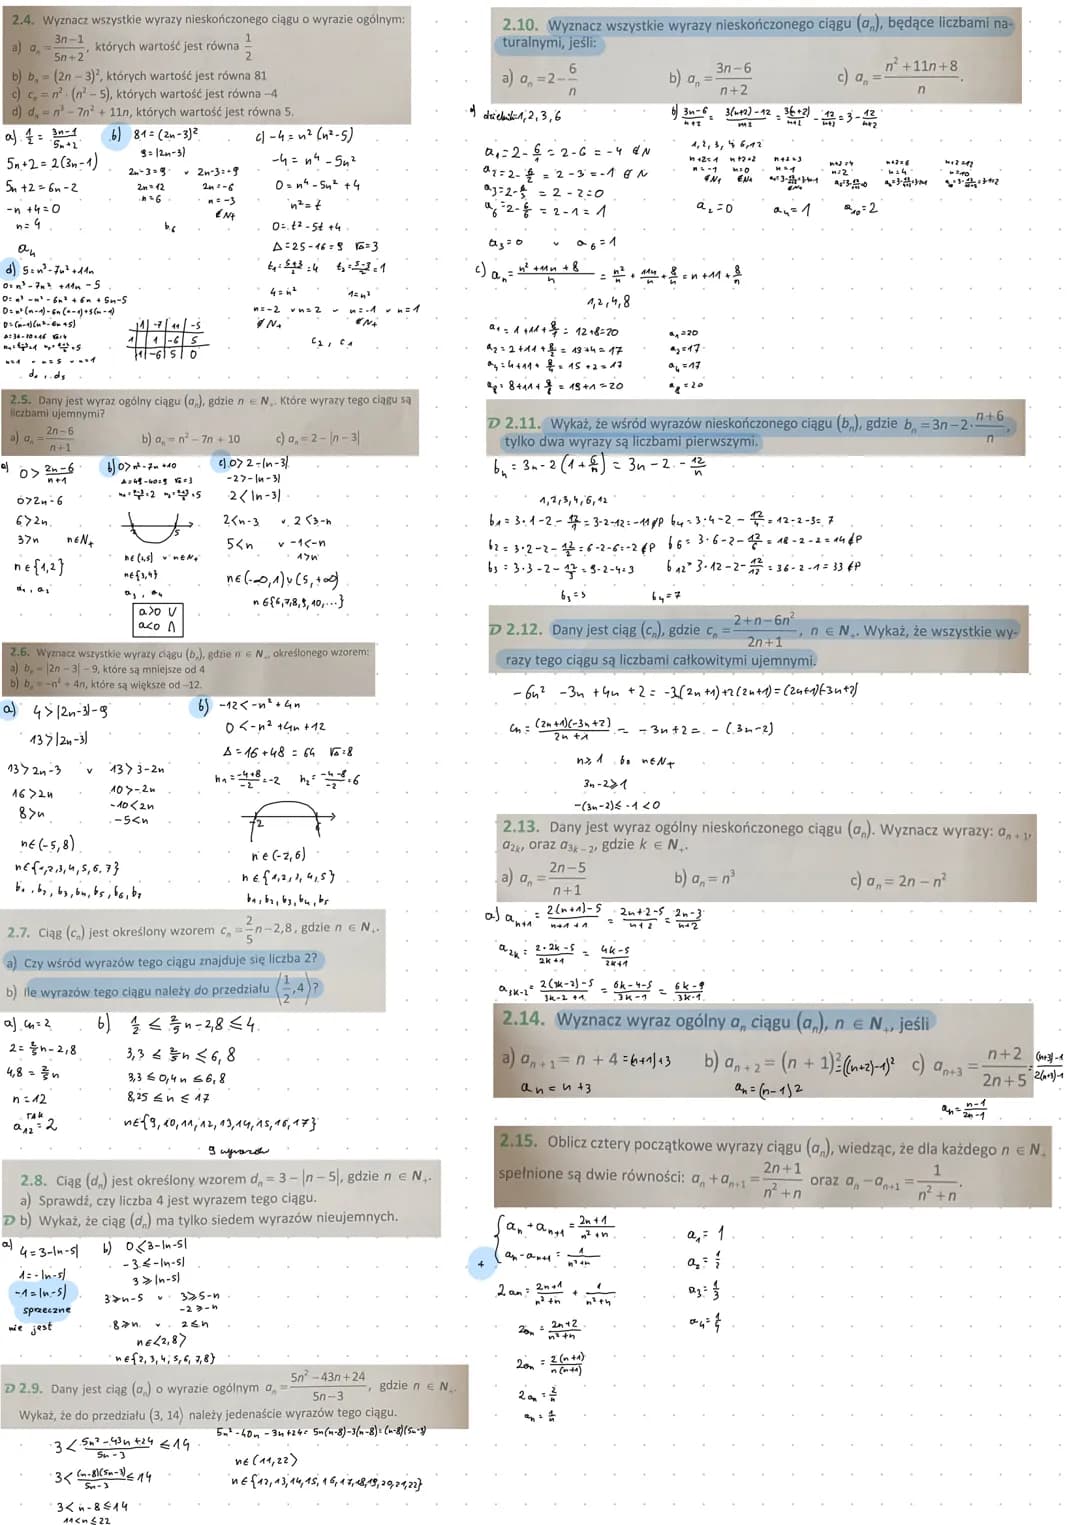 2.4. Wyznacz wszystkie wyrazy nieskończonego ciągu o wyrazie ogólnym:
a) aₙ = (3n−1)/(5n+2), których wartość jest równa 1/2
b) bₙ = (2n − 3)², których wartość jest równa 81
c) cₙ = n² · (n² − 5), których wartość jest równa −4
d) dₙ = n³ − 7n² + 11n, których wartość jest równa 5.
a) 1/2 = (3n−1)/(5n+2)
5n+2 = 2(3n−1)
5n+2 = 6n−2
−n+4=0
n=4
a₄
b) 81 = (2n−3)²
9 = |2n−3|
2n−3=9 v 2n−3=−9
2n=12 2n=−6
n=6 n=−3
∉N+
b₆
c) −4 = n²(n²−5)
−4 = n⁴ − 5n²
0 = n⁴ − 5n² + 4
n² = t
0 = t² − 5t + 4
Δ = 25−16 = 9 √Δ=3
t₁ = (5+3)/2 = 4 t₂ = (5−3)/2 = 1
4 = n² 1 = n²
n=−2 v n=2 v n=−1 v n=1
∉N+ ∉N+
c₂, c₁
d) 5 = n³ − 7n² + 11n
0 = n³ − 7n² + 11n − 5
0 = n³ − n² − 6n² + 6n + 5n − 5
0 = n²(n−1) − 6n(n−1) + 5(n−1)
0 = (n−1)(n²−6n+5)
n=1 v n=5 v n=1
d₁, d₅
1 −7 11 −5
1 1 −6 5
1 −6 5 0
2.5. Dany jest wyraz ogólny ciągu (aₙ), gdzie n ∈ N₊. Które wyrazy tego ciągu są
liczbami ujemnymi?
a) aₙ = (2n−6)/(n+1) b) aₙ = n² − 7n + 10 c) aₙ = 2 − |n − 3|
a) 0 > (2n−6)/(n+1)
0 > 2n−6
6 > 2n
3 > n n∈N+
n∈{1,2}
a₁, a₂
b) 0 > n² − 7n + 10
Δ = 49−40 = 9 √Δ=3
n₁ = (7−3)/2 = 2 n₂ = (7+3)/2 = 5
n∈(2,5) v n∈N+
n∈{3,4}
a₃, a₄
a>0 ∪
a<0 ∩
c) 0 > 2−|n−3|
−2 > −|n−3|
2 < |n−3|
2<n−3 v 2<3−n
5<n v −1<−n
1>n
n∈(−∞,1)∪(5,+∞)
n∈{6,7,8,9,10,...}
2.6. Wyznacz wszystkie wyrazy ciągu (bₙ), gdzie n ∈ N₊, określonego wzorem:
a) bₙ = |2n − 3| − 9, które są mniejsze od 4
b) bₙ = −n² + 4n, które są większe od −12.
a) 4 > |2n−3|−9
13 > |2n−3|
13 > 2n−3 v 13 > 3−2n
16 > 2n 10 > −2n
8 > n −10 < 2n
−5 < n
n∈(−5,8)
n∈{1,2,3,4,5,6,7}
b₁, b₂, b₃, b₄, b₅, b₆, b₇
b) −12 < −n² + 4n
0 < −n² + 4n + 12
Δ = 16 + 48 = 64 √Δ=8
n₁ = (−4+8)/−2 = −2 n₂ = (−4−8)/−2 = 6
−2 6
n∈(−2,6)
n∈{1,2,3,4,5}
b₁, b₂, b₃, b₄, b₅
2.7. Ciąg (cₙ) jest określony wzorem cₙ = 2/5 n − 2,8, gdzie n ∈ N₊.
a) Czy wśród wyrazów tego ciągu znajduje się liczba 2?
b) Ile wyrazów tego ciągu należy do przedziału ⟨1/2, 4⟩?
a) cₙ = 2
2 = 2/5 n − 2,8
4,8 = 2/5 n
n = 12
TAK
a₁₂ = 2
b) 1/2 ≤ 2/5 n − 2,8 ≤ 4
3,3 ≤ 2/5 n ≤ 6,8
3,3 ≤ 0,4n ≤ 6,8
8,25 ≤ n ≤ 17
n∈{9,10,11,12,13,14,15,16,17}
9 wyrazów
2.8. Ciąg (dₙ) jest określony wzorem dₙ = 3 − |n − 5|, gdzie n ∈ N₊.
a) Sprawdź, czy liczba 4 jest wyrazem tego ciągu.
D b) Wykaż, że ciąg (dₙ) ma tylko siedem wyrazów nieujemnych.
a) 4 = 3−|n−5|
1 = −|n−5|
−1 = |n−5|
sprzeczne
nie jest
b) 0 ≤ 3−|n−5|
−3 ≤ −|n−5|
3 ≥ |n−5|
3 ≥ n−5 v 3 ≥ 5−n
−2 ≥ −n
8 ≥ n v 2 ≤ n
n∈⟨2,8⟩
n∈{2,3,4,5,6,7,8}
D 2.9. Dany jest ciąg (aₙ) o wyrazie ogólnym aₙ = (5n² − 43n + 24)/(5n − 3), gdzie n ∈ N₊.
Wykaż, że do przedziału (3, 14⟩ należy jedenaście wyrazów tego ciągu.
3 < (5n²−43n+24)/(5n−3) ≤ 14
3 < (n−8)(5n−3)/(5n−3) ≤ 14
3 < n−8 ≤ 14
11 < n ≤ 22
5n² − 40n − 3n + 24 = 5n(n−8) − 3(n−8) = (n−8)(5n−3)
n∈(11,22⟩
n∈{12,13,14,15,16,17,18,19,20,21,22}
2.10. Wyznacz wszystkie wyrazy nieskończonego ciągu (aₙ), będące liczbami na-
turalnymi, jeśli:
a) aₙ = 2 − 6/n b) aₙ = (3n−6)/(n+2) c) aₙ = (n² + 11n + 8)/n.
a) dzielniki 1, 2, 3, 6
a₁ = 2 − 6/1 = 2−6 = −4 ∉N
a₂ = 2 − 6/2 = 2−3 = −1 ∉N
a₃ = 2 − 6/3 = 2−2 = 0
a₆ = 2 − 6/6 = 2−1 = 1
a₃ = 0 v a₆ = 1
b) (3n−6)/(n+2) = (3(n+2)−12)/(n+2) = 3(n+2)/(n+2) − 12/(n+2) = 3 − 12/(n+2)
1, 2, 3, 4, 6, 12
n+2=1 n+2=2 n+2=3 n+2=4 n+2=6 n+2=12
n=−1 n=0 n=1 n=2 n=4 n=10
a₂ = 0 a₄ = 1 a₁₀ = 2
c) aₙ = (n²+11n+8)/n = n²/n + 11n/n + 8/n = n + 11 + 8/n
1, 2, 4, 8
a₁ = 1+11+8/1 = 12+8 = 20 a₁ = 20
a₂ = 2+11+8/2 = 13+4 = 17 a₂ = 17
a₄ = 4+11+8/4 = 15+2 = 17 a₄ = 17
a₈ = 8+11+8/8 = 19+1 = 20 a₈ = 20
D 2.11. Wykaż, że wśród wyrazów nieskończonego ciągu (bₙ), gdzie bₙ = 3n − 2 · (n+6)/n,
tylko dwa wyrazy są liczbami pierwszymi.
bₙ = 3n − 2(1 + 6/n) = 3n − 2 − 12/n
1, 2, 3, 4, 6, 12
b₁ = 3·1−2−12/1 = 3−2−12 = −11 ∉P b₄ = 3·4−2−12/4 = 12−2−3 = 7
b₂ = 3·2−2−12/2 = 6−2−6 = −2 ∉P b₆ = 3·6−2−12/6 = 18−2−2 = 14 ∉P
b₃ = 3·3−2−12/3 = 9−2−4 = 3 b₁₂ = 3·12−2−12/12 = 36−2−1 = 33 ∉P
b₃ = 3 b₄ = 7
D 2.12. Dany jest ciąg (cₙ), gdzie cₙ = (2 + n − 6n²)/(2n + 1), n ∈ N₊. Wykaż, że wszystkie wy-
razy tego ciągu są liczbami całkowitymi ujemnymi.
−6n² − 3n + 4n + 2 = −3n(2n+1) + 2(2n+1) = (2n+1)(−3n+2)
cₙ = (2n+1)(−3n+2)/(2n+1) = −3n+2 = −(3n−2)
n ≥ 1 bo n∈N+
3n−2 ≥ 1
−(3n−2) ≤ −1 < 0
2.13. Dany jest wyraz ogólny nieskończonego ciągu (aₙ). Wyznacz wyrazy: aₙ₊₁,
a₂ₖ, oraz a₃ₖ₋₂, gdzie k ∈ N₊.
a) aₙ = (2n−5)/(n+1) b) aₙ = n³ c) aₙ = 2n − n²
a) aₙ₊₁ = (2(n+1)−5)/(n+1+1) = (2n+2−5)/(n+2) = (2n−3)/(n+2)
a₂ₖ = (2·2k−5)/(2k+1) = (4k−5)/(2k+1)
a₃ₖ₋₂ = (2(3k−2)−5)/(3k−2+1) = (6k−4−5)/(3k−1) = (6k−9)/(3k−1)
2.14. Wyznacz wyraz ogólny aₙ ciągu (aₙ), n ∈ N₊, jeśli
a) aₙ₊₁ = n + 4 = (n+1)+3 b) aₙ₊₂ = (n + 1)² = ((n+2)−1)² c) aₙ₊₃ = (n+2)/(2n+5) = ((n+3)−1)/(2(n+3)−1)
aₙ = n+3 aₙ = (n−1)² aₙ = (n−1)/(2n−1)
2.15. Oblicz cztery początkowe wyrazy ciągu (aₙ), wiedząc, że dla każdego n ∈ N₊
spełnione są dwie równości: aₙ + aₙ₊₁ = (2n+1)/(n²+n) oraz aₙ − aₙ₊₁ = 1/(n²+n).
aₙ + aₙ₊₁ = (2n+1)/(n²+n)
+ aₙ − aₙ₊₁ = 1/(n²+n)
2aₙ = (2n+1)/(n²+n) + 1/(n²+n)
2aₙ = (2n+2)/(n²+n)
2aₙ = 2(n+1)/n(n+1)
2aₙ = 2/n
aₙ = 1/n
a₁ = 1
a₂ = 1/2
a₃ = 1/3
a₄ = 1/4